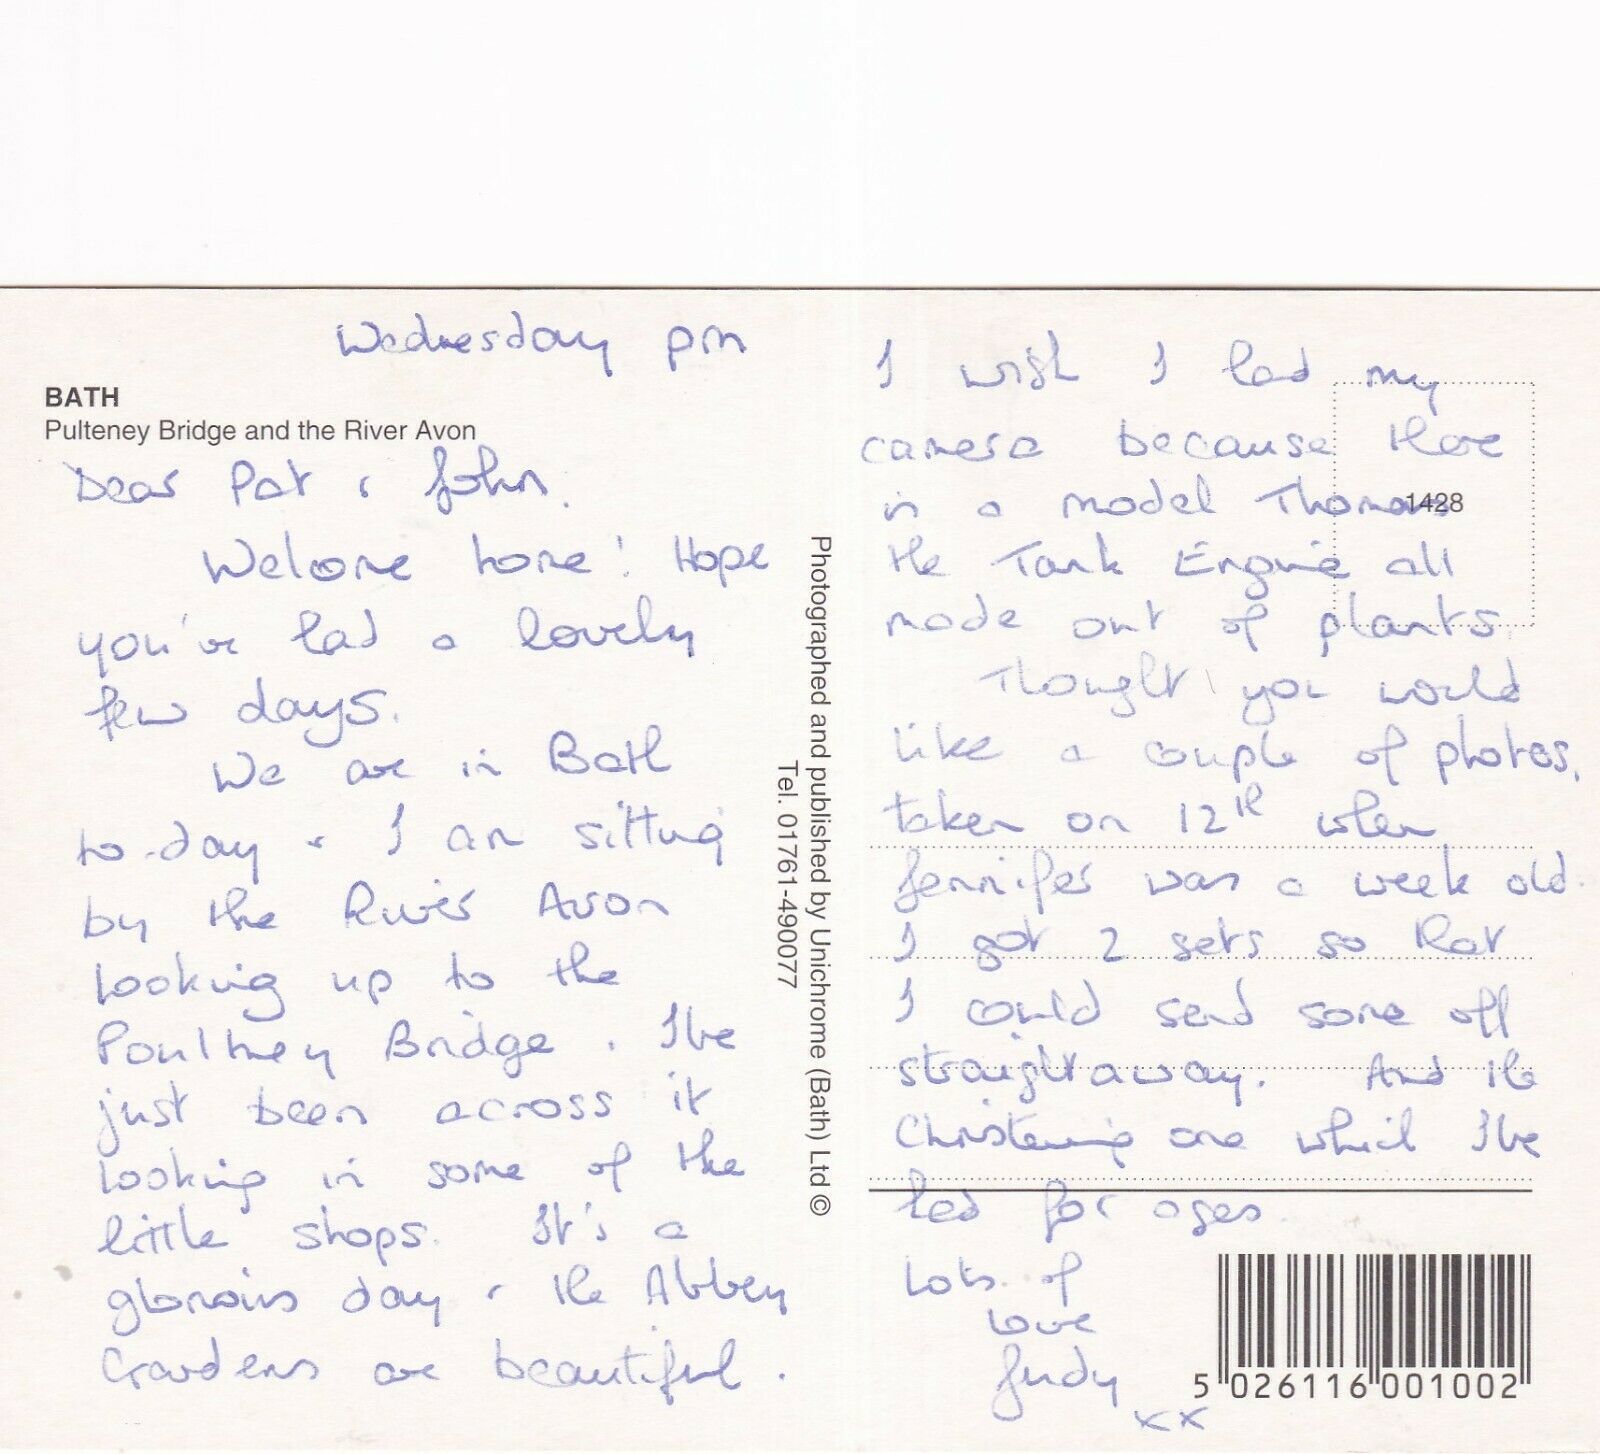 Wednesday pm
BATH
Pulteney Bridge and the River Avon
Dear Pat & John.
Welcome home! Hope
you've had a lovely
few days.
We are in Bath
to-day & I am sitting
by the River Avon
looking up to the
Poultney Bridge. I've
just been across it
looking in some of the
little shops. It's a
glorious day & the Abbey
Gardens are beautiful.
Photographed and published by Unichrome (Bath) Ltd ©
Tel. 01761-490077
I wish I had my
camera because there
is a model Thomas
1428
the Tank Engine all
made out of plants.
Thought you would
like a couple of photos,
taken on 12th when
Jennifer was a week old.
I got 2 sets so that
I could send some off
straightaway. And the
Christening one which I've
had for ages.
Lots of
love
Judy
xx
5 026116 001002